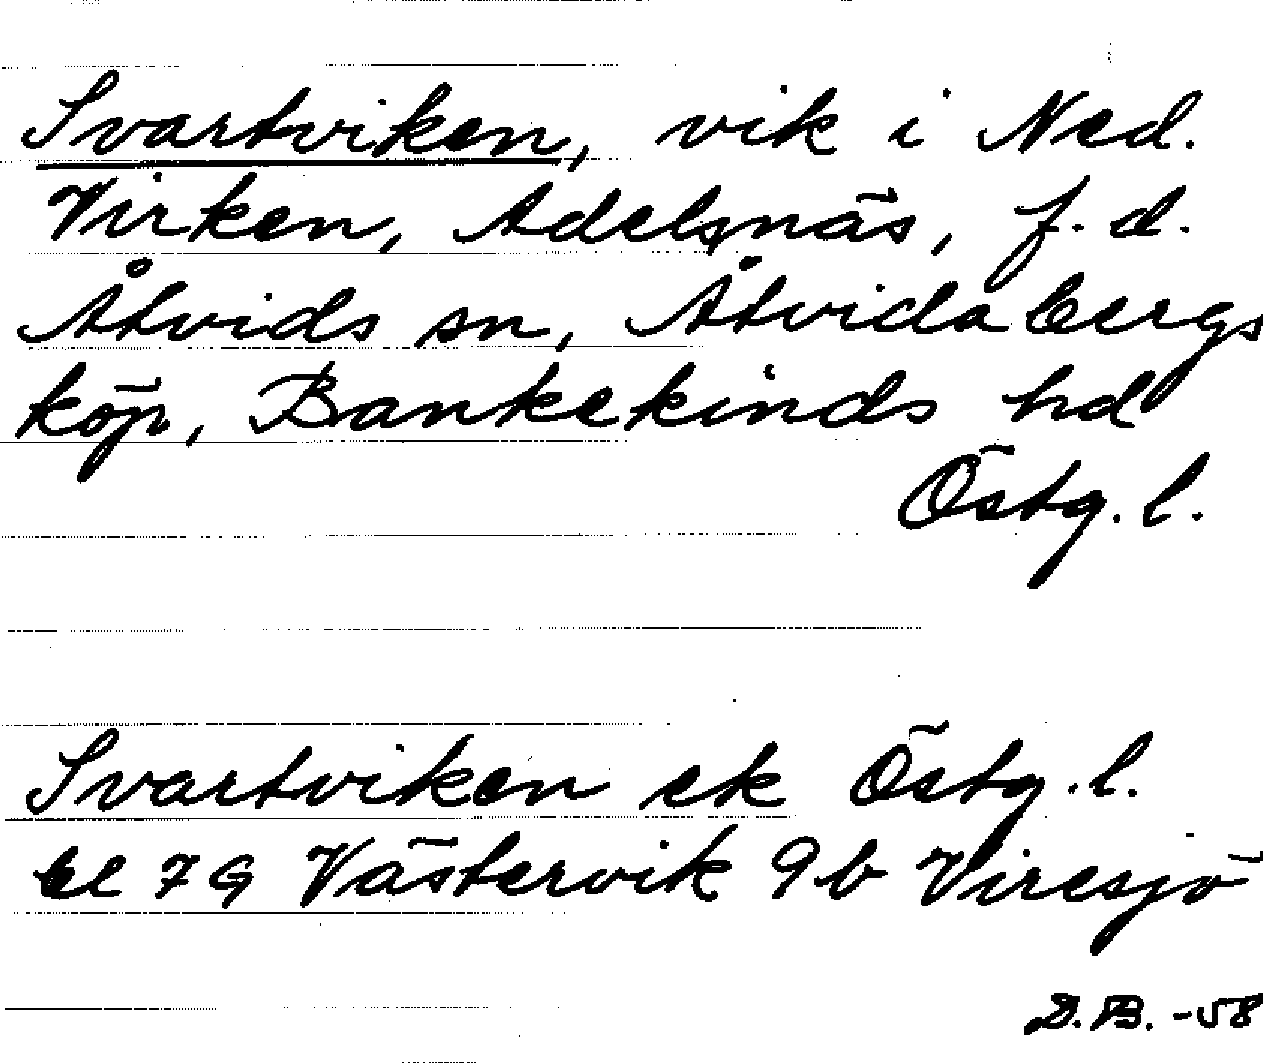 Svartviken, vik i Ned.
Virken, Adelsnäs, f.d.
Åtvids sn, Åtvidabergs
köp, Bankekinds hd
Östg. l.
Svartviken ek Östg. l.
bl 79 Västervik 9b Viresjö
D.B. -58